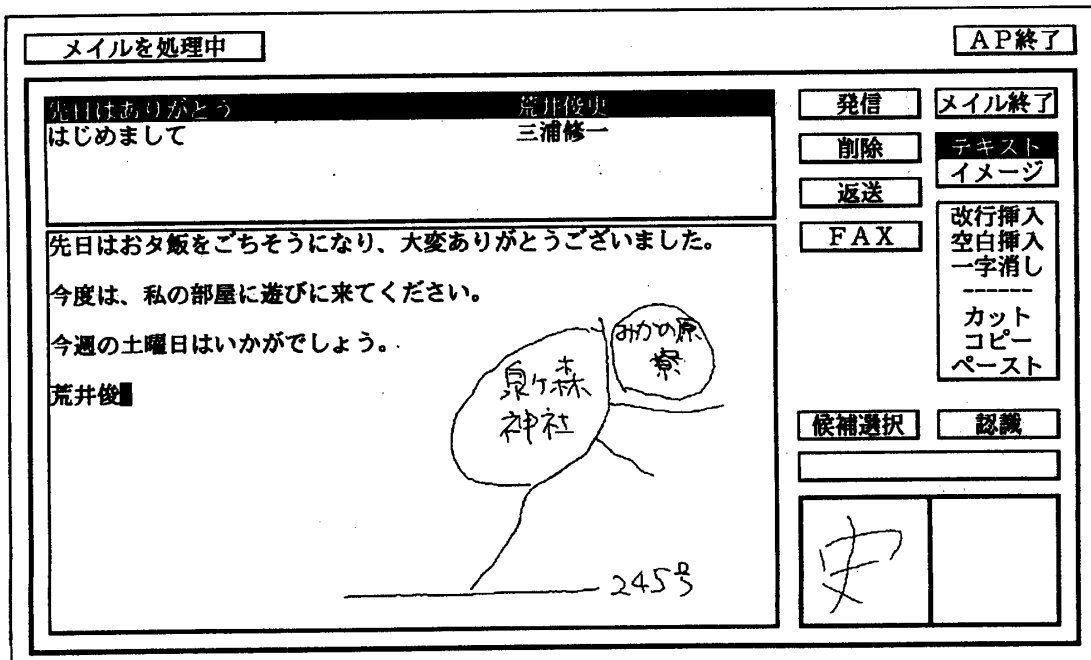 メイルを処理中
AP終了
先日はありがとう 荒井俊史
はじめまして 三浦修一
発信
メイル終了
削除
テキスト
イメージ
返送
FAX
改行挿入
空白挿入
一字消し
------
カット
コピー
ペースト
先日はお夕飯をごちそうになり、大変ありがとうございました。
今度は、私の部屋に遊びに来てください。
今週の土曜日はいかがでしょう。
荒井俊
みかの原
寮
泉ヶ森
神社
245号
候補選択
認識
史